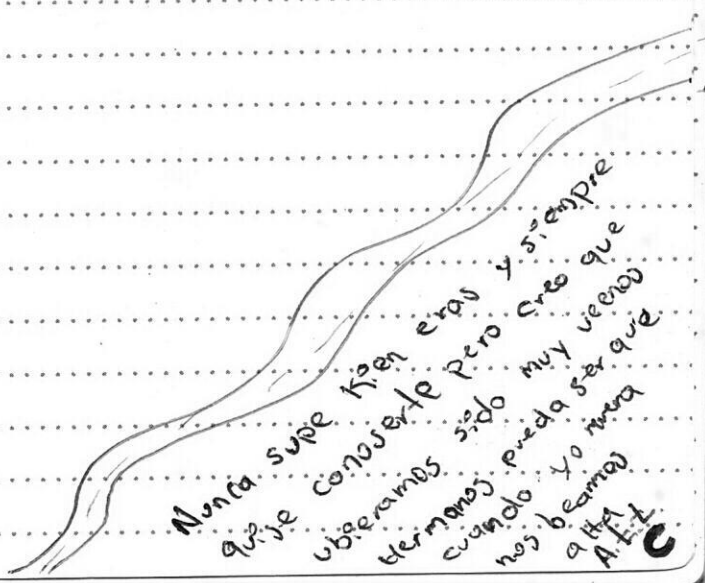 Nunca supe Kien eras y siempre
quise conoserte pero creo que
ubieramos sido muy veenos
Hermanos pueda ser que
cuando yo muera
nos beamos
alla
A.L.L
C